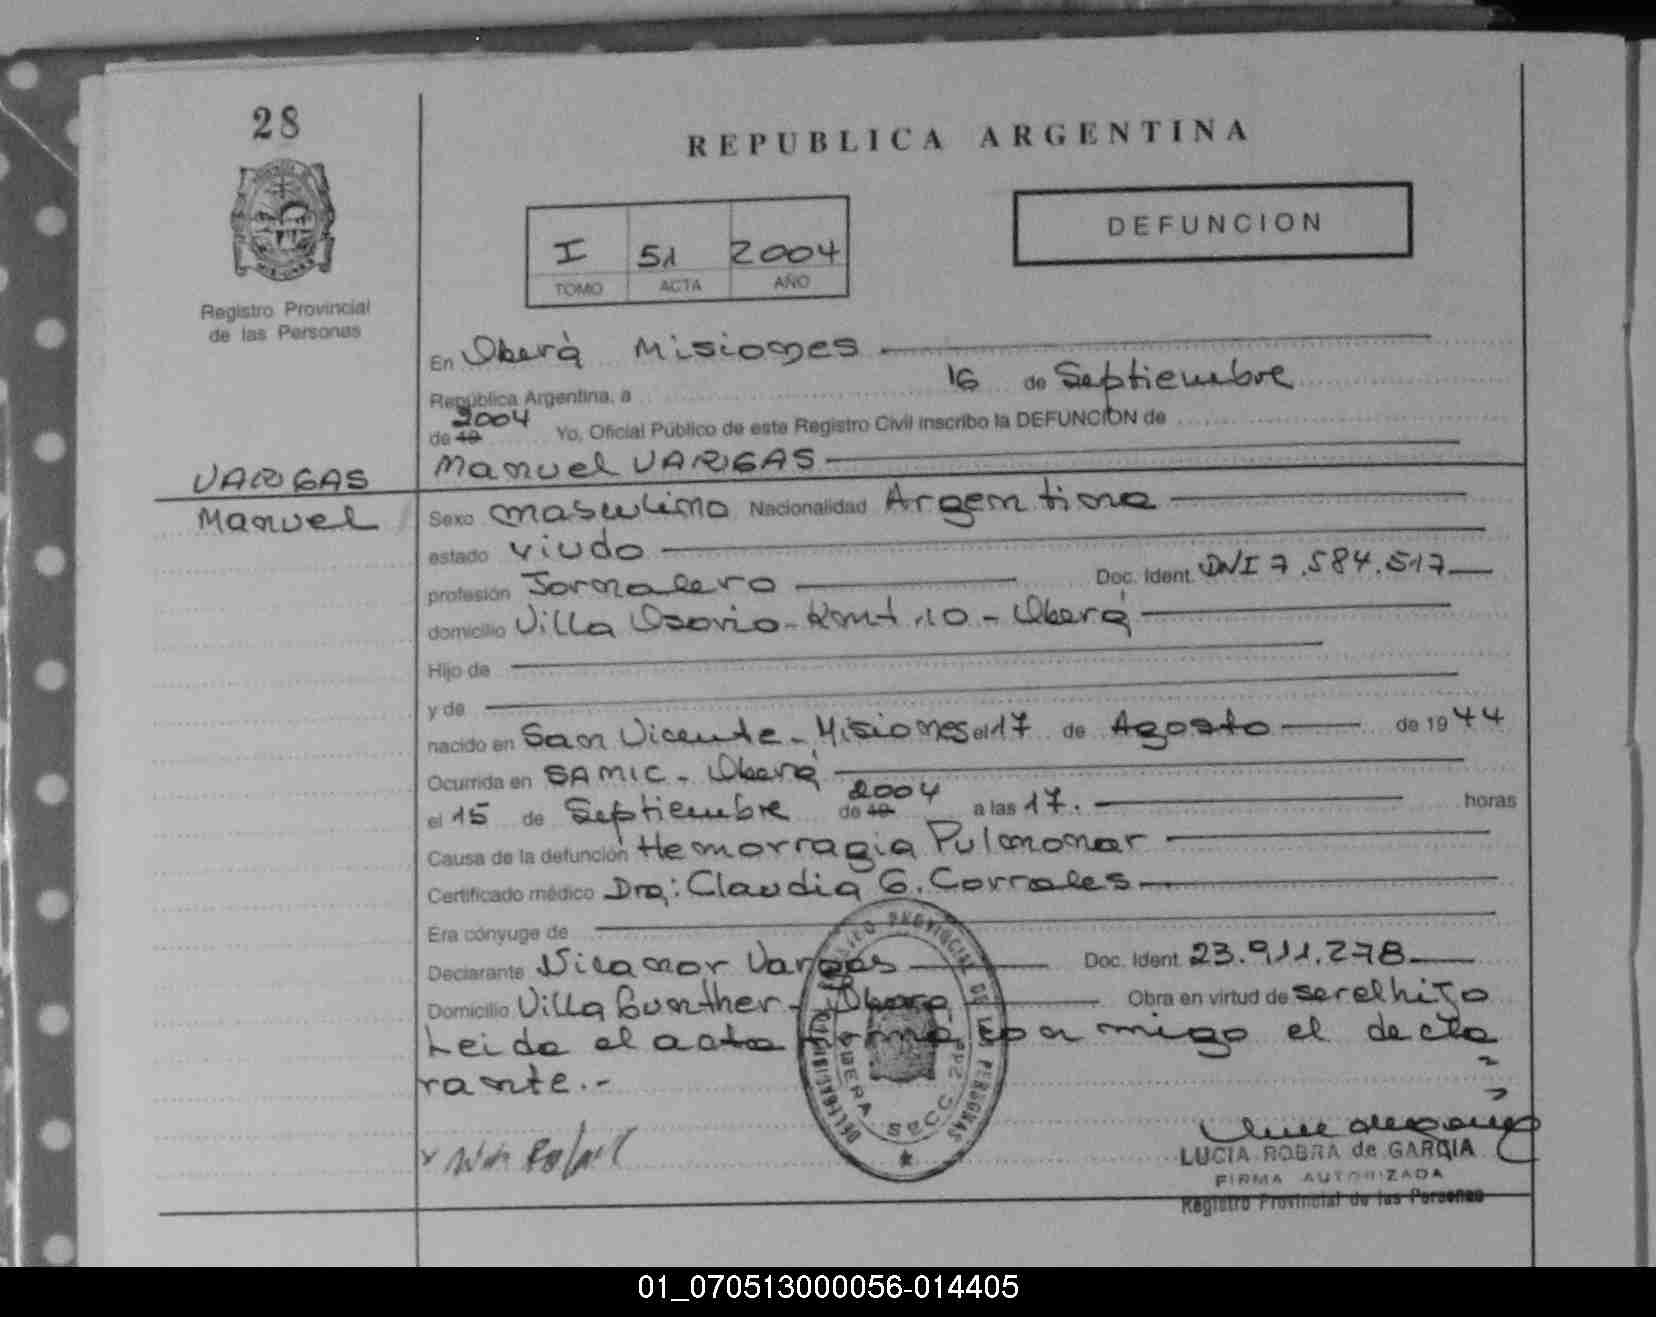 28
REPUBLICA ARGENTINA
DEFUNCION
I 51 2004
TOMO ACTA AÑO
Registro Provincial
de las Personas
En Oberá Misiones
República Argentina, a 16 de Septiembre
2004
de 19 Yo, Oficial Público de este Registro Civil inscribo la DEFUNCION de
VARGAS
Manuel VARGAS
Manuel
Sexo masculino Nacionalidad Argentina
estado viudo
profesión Jornalero Doc. Ident. DNI 7.584.517
domicilio Villa Osorio - 10 - Oberá
Hijo de
y de
nacido en San Vicente - Misiones el 17 de Agosto de 1944
Ocurrida en SAMIC - Oberá
2004
el 15 de Septiembre de 19 a las 17. horas
Causa de la defunción Hemorragia Pulmonar
Certificado médico Dra: Claudia G. Corrales
Era cónyuge de
Declarante Nicanor Vargas Doc. Ident. 23.911.278
Domicilio Villa Gunther - Oberá Obra en virtud de ser el hijo
Leida el acta firma conmigo el decla
rante.-
PROVINCIAL DE LAS PERSONAS
OBERA SECC. 2da
LUCIA ROBRA de GARCIA
FIRMA AUTORIZADA
Registro Provincial de las Personas
01_070513000056-014405